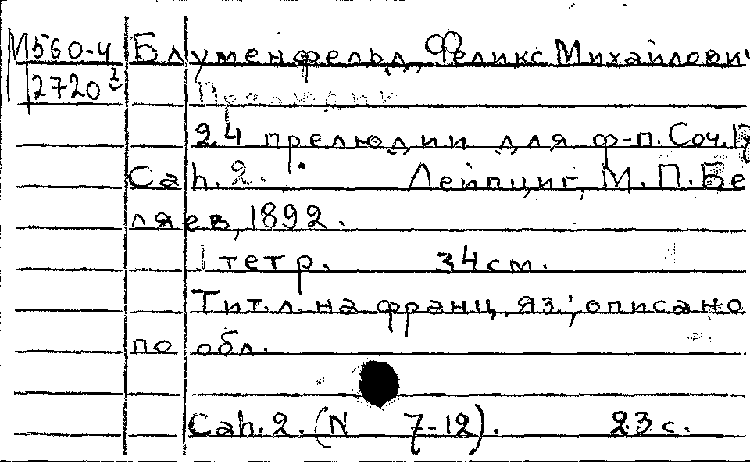 М560-4 Блуменфельд, Феликс Михайлович
2720
24 прелюдии для ф-п. Соч.
Cah. 2. Лейпциг, М. П. Бе
ляев, 1892.
1 тетр. 34 см.
Тит. л. на франц. яз.; описано
по обл.
Cah. 2. (N 7-12). 23 с.